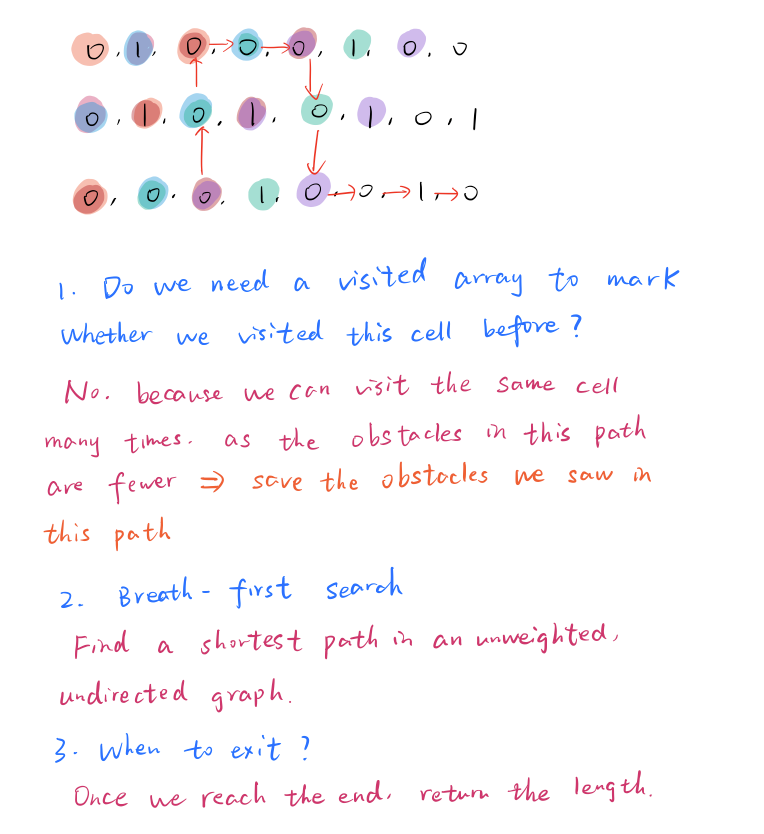 0, 1, 0, 0, 0, 1, 0, 0
0, 1, 0, 1, 0, 1, 0, 1
0, 0, 0, 1, 0, 0, 1, 0
1. Do we need a visited array to mark
whether we visited this cell before?
No. because we can visit the same cell
many times. as the obstacles in this path
are fewer ⇒ save the obstacles we saw in
this path
2. Breath-first search
Find a shortest path in an unweighted,
undirected graph.
3. When to exit?
Once we reach the end, return the length.